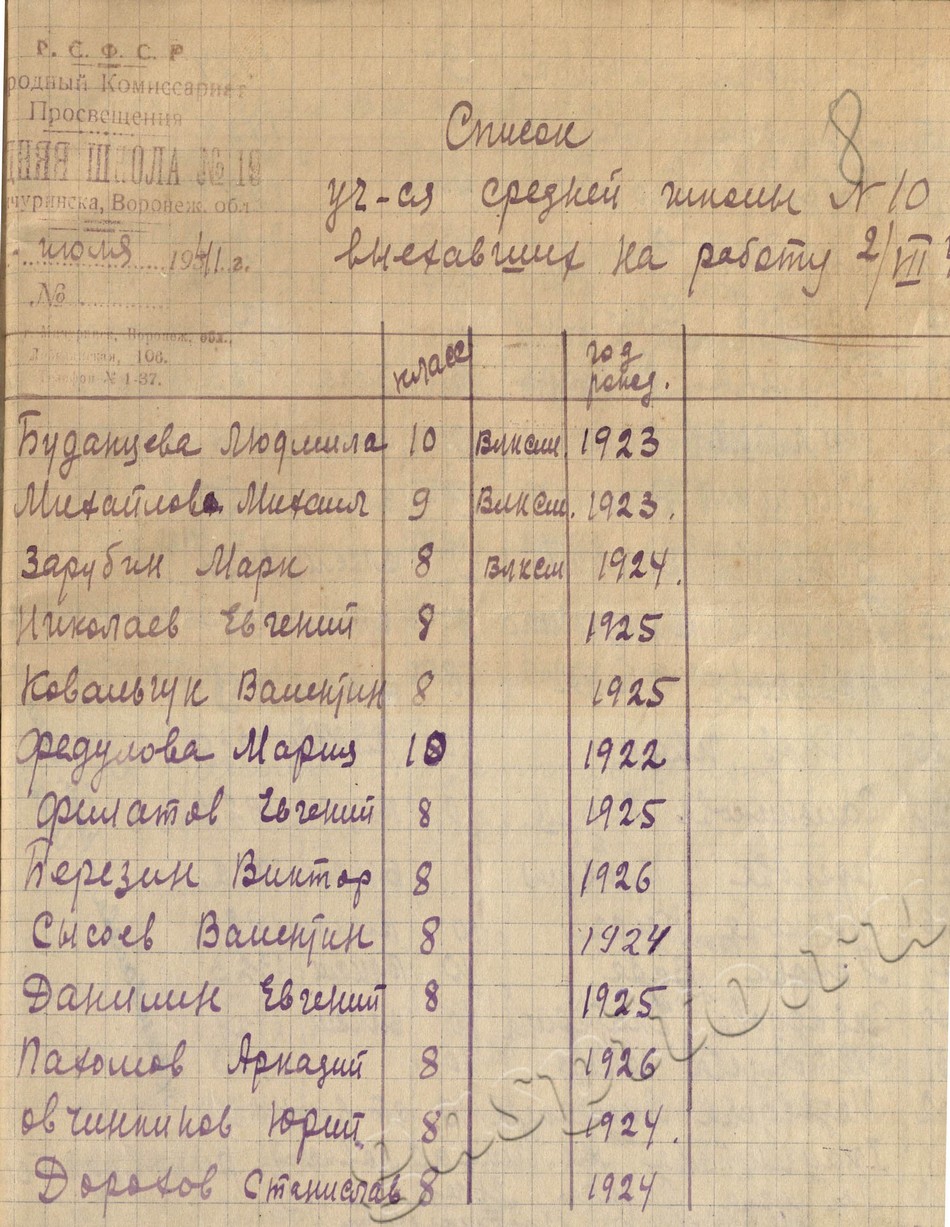 Р. С. Ф. С. Р
родный Комиссариат
Просвещения
ДНЯЯ ШКОЛА № 10
чуринска, Воронеж. обл
июля 1941 г.
№
г. Мичуринск, Воронеж, обл.,
106.
Телефон № 1-37.
8
Список
уч-ся средней школы № 10
выехавших на работу 2/VII
класс год рожд.
Буданцева Людмила 10 Влксм. 1923
Михайлов Михаил 9 Влксм. 1923.
Зарубин Марк 8 Влксм 1924.
Николаев Евгений 8 1925
Ковальчук Валентин 8 1925
Федулова Мария 10 1922
Филатов Евгений 8 1925
Березин Виктор 8 1926
Сысоев Валентин 8 1924
Данилин Евгений 8 1925
Пахомов Аркадий 8 1926
Овчинников Юрий 8 1924.
Дорохов Станислав 8 1924